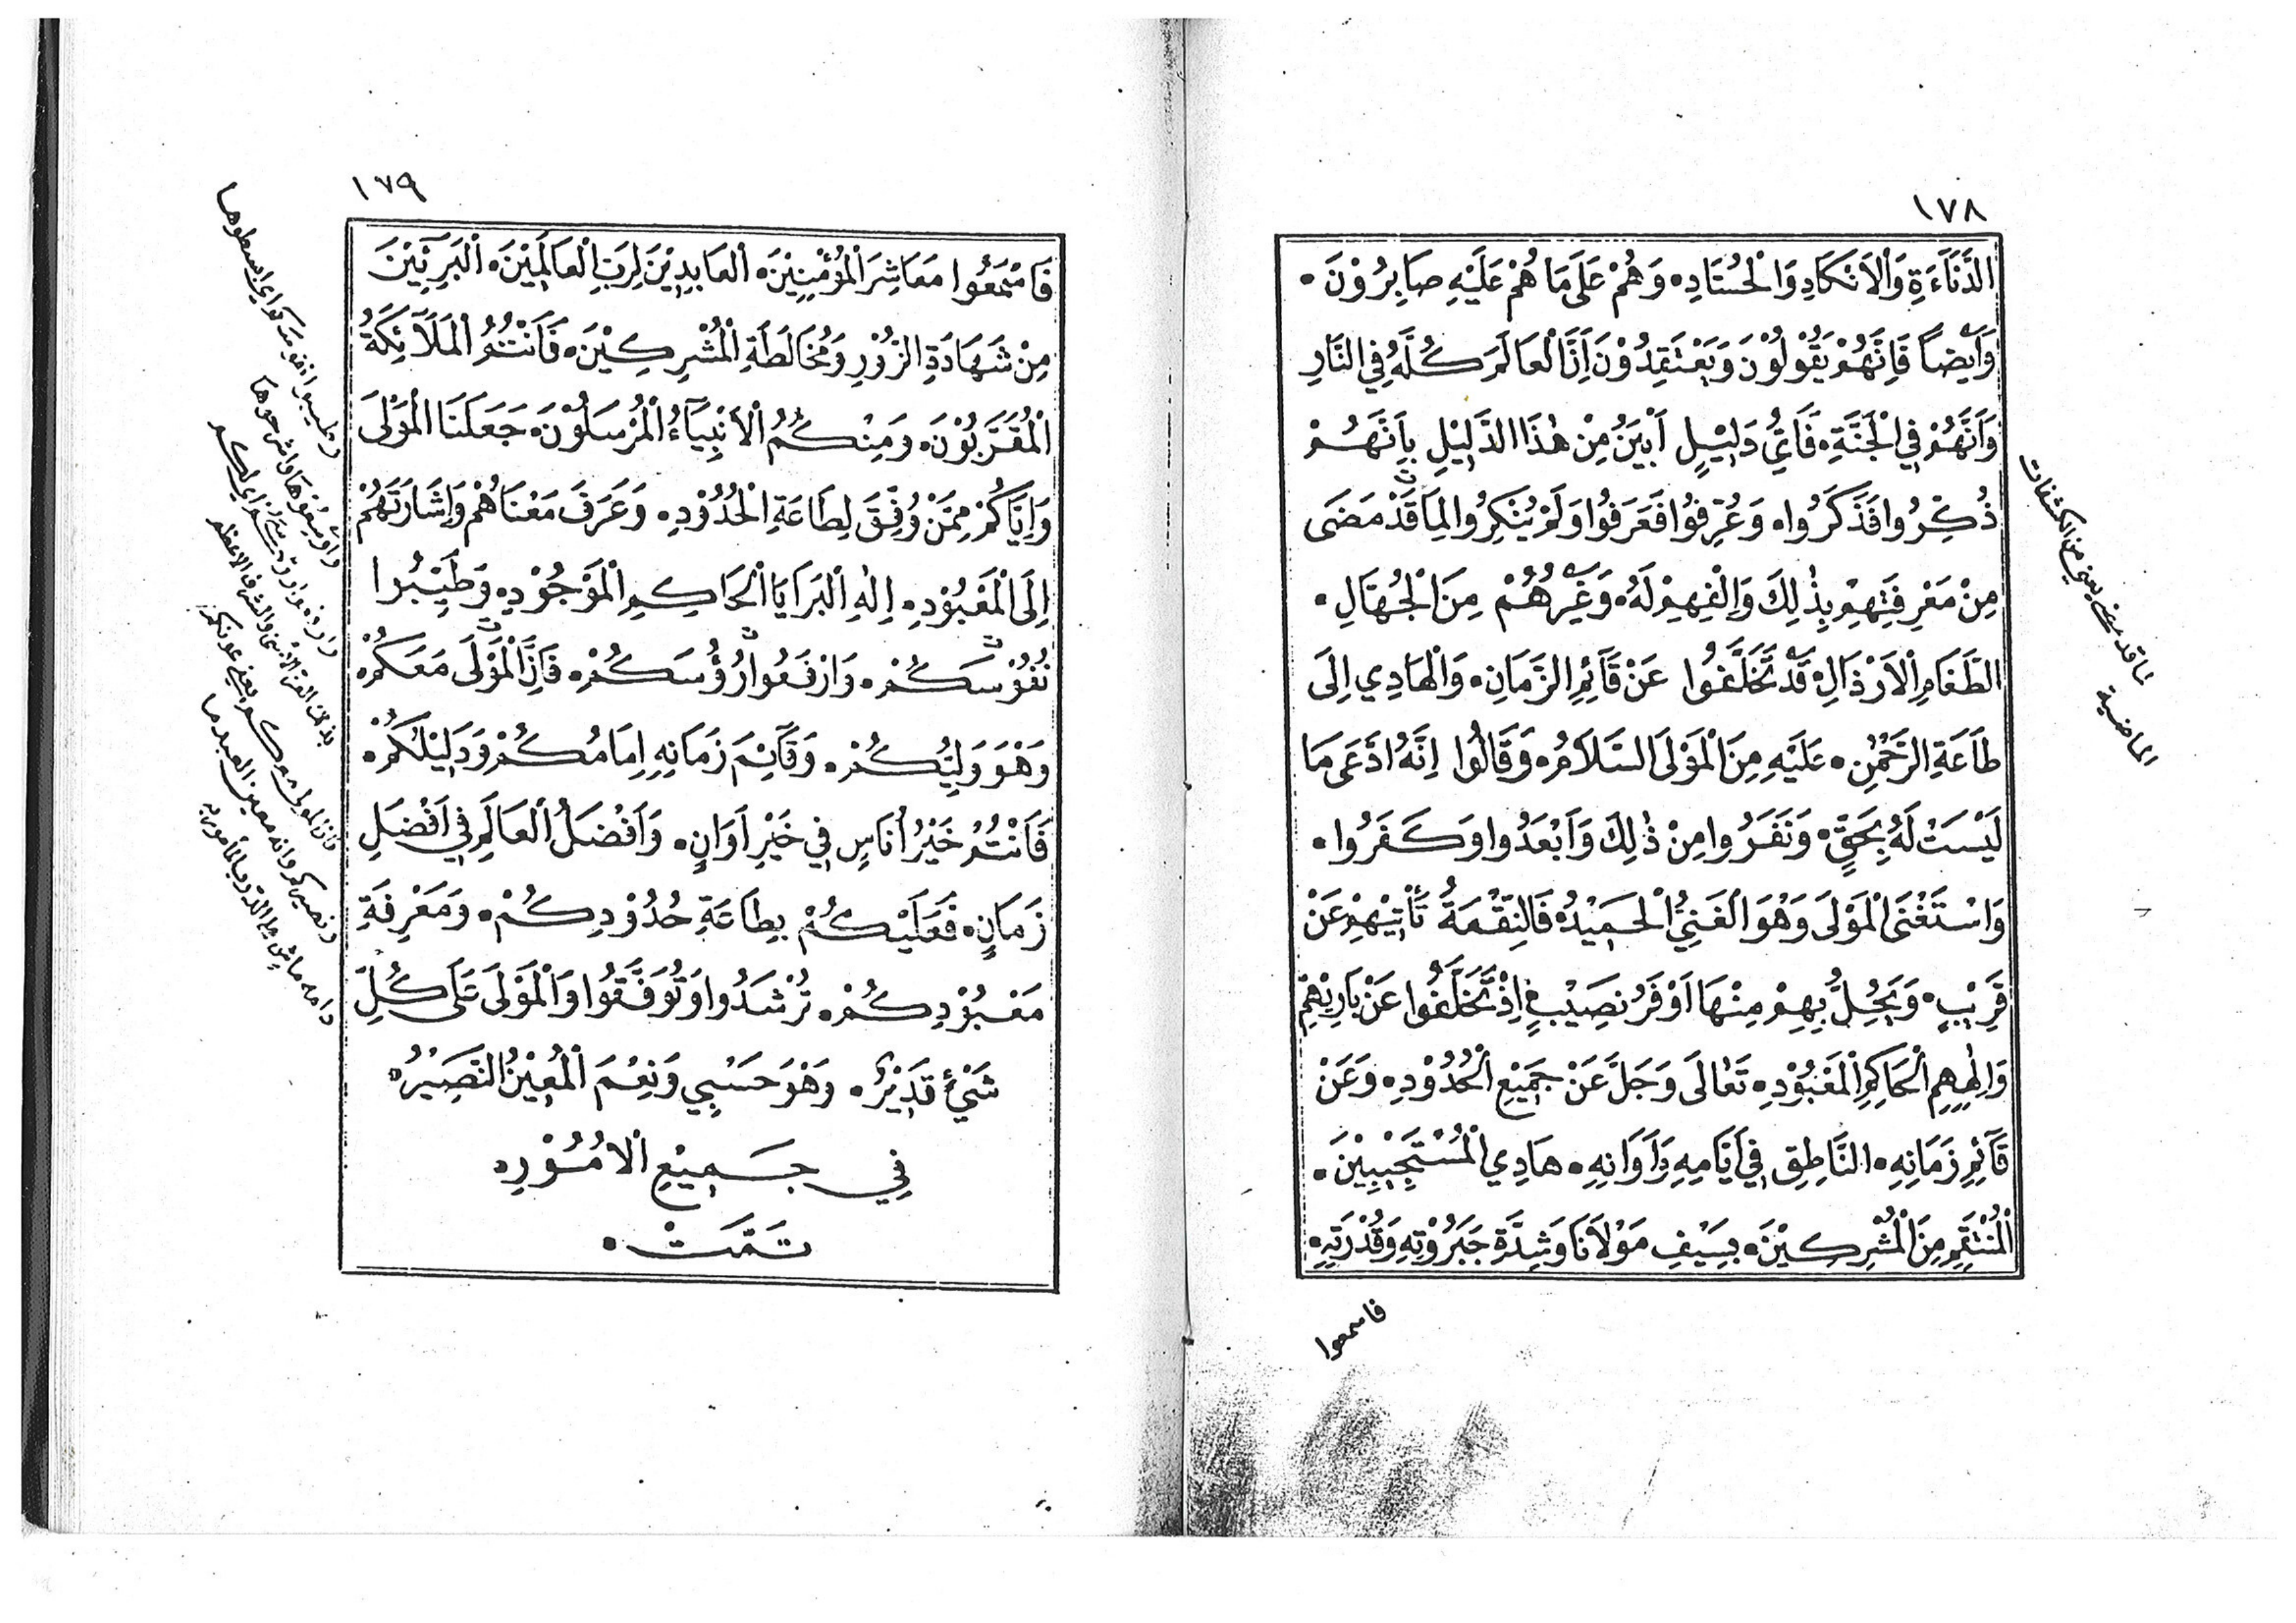 ١٧٨
الدَّنَاءَةِ وَالْاَنْكَادِ وَالْحُسَّادِ. وَهُمْ عَلَى مَا هُمْ عَلَيْهِ صَابِرُوْنَ.
وَاَيْضاً فَاِنَّهُمْ يَقُوْلُوْنَ وَيَعْتَقِدُوْنَ اَنَّ الْعَالَمَ كُلَّهُ فِي النَّارِ
وَاَنَّهُمْ فِي الْجَنَّةِ. فَاَيُّ دَلِيْلٍ اَبْيَنُ مِنْ هٰذَا الدَّلِيْلِ بِاَنَّهُمْ
ذُكِّرُوا فَذَكَرُوا. وَعُرِّفُوا فَعَرَفُوا وَلَمْ يُنْكِرُوا لِمَا قَدْ مَضَى
مِنْ مَعْرِفَتِهِمْ بِذٰلِكَ وَاِلْفِهِمْ لَهُ. وَغَيْرُهُمْ مِنَ الْجُهَّالِ.
الطَّغَامِ الْاَرْذَالِ. قَدْ تَخَلَّفُوا عَنْ قَآئِمِ الزَّمَانِ. وَالْهَادِي اِلَى
طَاعَةِ الرَّحْمٰنِ. عَلَيْهِ مِنَ الْمَوْلَى السَّلَامُ. وَقَالُوا اِنَّهُ ادَّعَى مَا
لَيْسَتْ لَهُ بِحَقٍّ. وَنَفَرُوا مِنْ ذٰلِكَ وَاَبْعَدُوا وَكَفَرُوا.
وَاسْتَغْنَى الْمَوْلَى وَهْوَ الْغَنِيُّ الْحَمِيْدُ. فَالنِّقْمَةُ تَأْتِيْهِمْ عَنْ
قَرِيْبٍ. وَيَحُلُّ بِهِمْ مِنْهَا اَوْفَرُ نَصِيْبٍ. اِذْ تَخَلَّفُوا عَنْ بَارِيْهِمْ
وَاِلٰهِهِمِ الْحَاكِمِ الْمَعْبُوْدِ. تَعَالَى وَجَلَّ عَنْ جَمِيْعِ الْحُدُوْدِ. وَعَنْ
قَآئِمِ زَمَانِهِ. النَّاطِقِ فِي اَيَّامِهِ وَاَوَانِهِ. هَادِي الْمُسْتَجِيْبِيْنَ.
الْمُنْتَقِمِ مِنَ الْمُشْرِكِيْنَ. بِسَيْفِ مَوْلَانَا وَشِدَّةِ جَبَرُوْتِهِ وَقُدْرَتِهِ.
فاسمعوا
ما قد مضى يعني من الكشفات
الماضية
١٧٩
فَاسْمَعُوا مَعَاشِرَ الْمُؤْمِنِيْنَ. الْعَابِدِيْنَ لِرَبِّ الْعَالَمِيْنَ. الْبَرِيْئِيْنَ
مِنْ شَهَادَةِ الزُّوْرِ وَمُخَالَطَةِ الْمُشْرِكِيْنَ. فَاَنْتُمُ الْمَلَآئِكَةُ
الْمُقَرَّبُوْنَ. وَمِنْكُمُ الْاَنْبِيَآءُ الْمُرْسَلُوْنَ. جَعَلَنَا الْمَوْلَى
وَاِيَّاكُمْ مِمَّنْ وُفِّقَ لِطَاعَةِ الْحُدُوْدِ. وَعَرَفَ مَعْنَاهُمْ وَاِشَارَتَهُمْ
اِلَى الْمَعْبُوْدِ. اِلٰهِ الْبَرَايَا الْحَاكِمِ الْمَوْجُوْدِ. وَطَيِّبُوا
نُفُوْسَكُمْ. وَارْفَعُوا رُؤُسَكُمْ. فَاِنَّ الْمَوْلَى مَعَكُمْ.
وَهْوَ وَلِيُّكُمْ. وَقَآئِمَ زَمَانِهِ اِمَامُكُمْ وَدَلِيْلُكُمْ.
فَاَنْتُمْ خَيْرُ اُنَاسٍ فِي خَيْرِ اَوَانٍ. وَاَفْضَلُ الْعَالَمِ فِي اَفْضَلِ
زَمَانٍ. فَعَلَيْكُمْ بِطَاعَةِ حُدُوْدِكُمْ. وَمَعْرِفَةِ
مَعْبُوْدِكُمْ. تُرْشَدُوا وَتُوَفَّقُوا وَالْمَوْلَى عَلَى كُلِّ
شَيْءٍ قَدِيْرٌ. وَهْوَ حَسْبِي وَنِعْمَ الْمُعِيْنُ النَّصِيْرُ.
فِي جَمِيْعِ الْاُمُوْرِ.
تَمَّتْ.